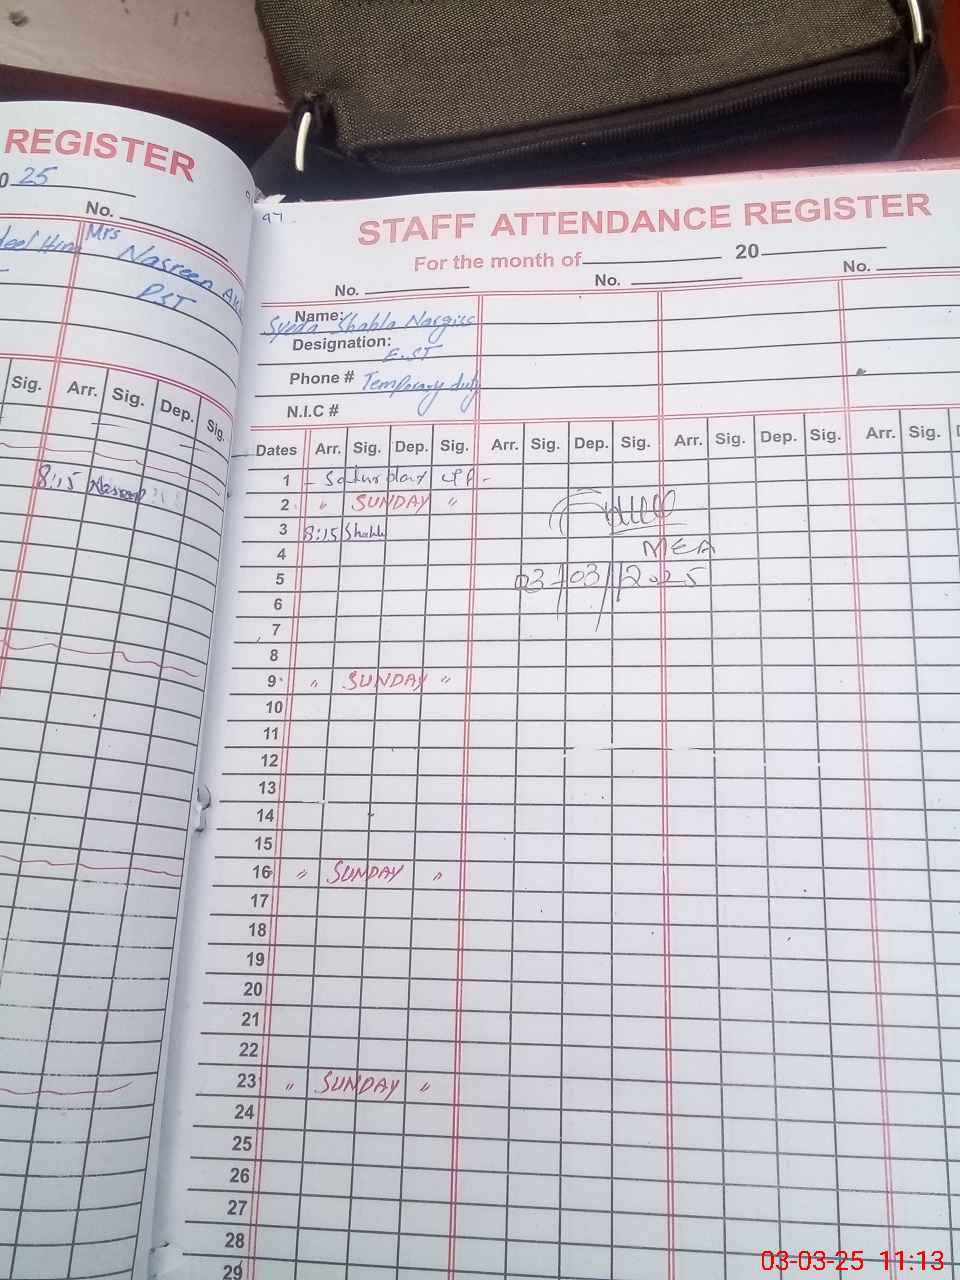 REGISTER
0 25
No.
Mrs
Nasreen
PST
Sig. Arr. Sig. Dep. Sig.
8:15 Nasreen
STAFF ATTENDANCE REGISTER
For the month of 20
No. No. No.
Name: Syeda Shahla Nargiss
Designation: E.ST
Phone # Temporary duty
N.I.C #
Dates Arr. Sig. Dep. Sig. Arr. Sig. Dep. Sig. Arr. Sig. Dep. Sig. Arr. Sig.
1 - Saturday off -
2 " SUNDAY "
3 8:15 Shahla
4 MEA
5 03/03/2025
6
7
8
9 " SUNDAY "
10
11
12
13
14
15
16 " SUNDAY "
17
18
19
20
21
22
23 " SUNDAY "
24
25
26
27
28
29
03-03-25 11:13